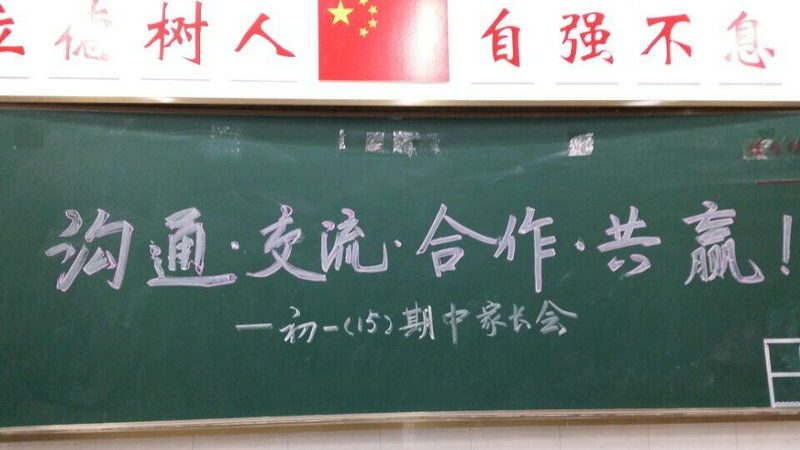 立德树人 自强不息
沟通·交流·合作·共赢！
—初一(15)期中家长会